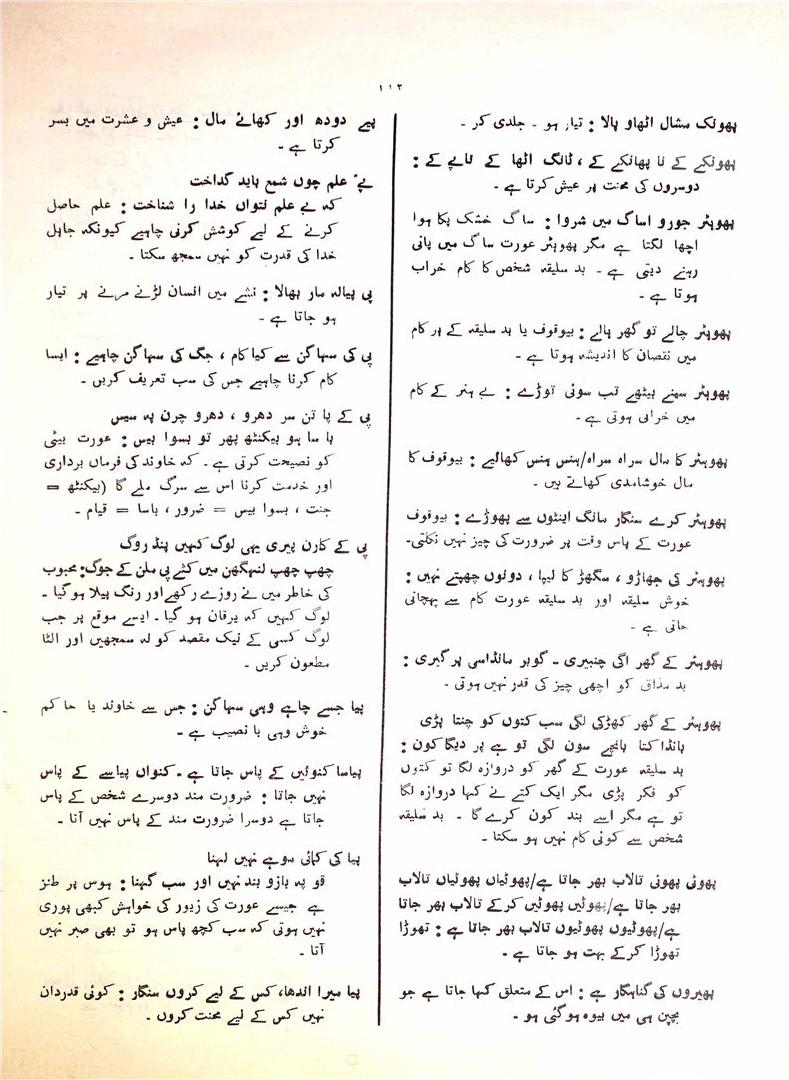 ۱۱۲
پھونک مشال اٹھاو پالا : تیار ہو ۔ جلدی کر ۔
پھونکے کے نا پھانکے کے ، ٹانگ اٹھا کے تاپے کے :
دوسروں کی محنت پر عیش کرتا ہے ۔
پھوہٹر جورو اساگ میں شروا : ساگ خشک پکا ہوا
اچھا لگتا ہے مگر پھوہٹر عورت ساگ میں پانی
رہنے دیتی ہے ۔ بد سلیقہ شخص کا کام خراب
ہوتا ہے ۔
پھوہٹر چالے تو گھر ہالے : بیوقوف یا بد سلیقہ کے ہر کام
میں نقصان کا اندیشہ ہوتا ہے ۔
پھوہٹر سینے بیٹھے تب سوئی توڑے : بے ہنر کے کام
میں خرابی ہوتی ہے ۔
پھوہٹر کا مال سراہ سراہ/ہنس ہنس کھائیے : بیوقوف کا
مال خوشامدی کھاتے ہیں ۔
پھوہٹر کرے سنگار مانگ اینٹوں سے پھوڑے : بیوقوف
عورت کے پاس وقت پر ضرورت کی چیز نہیں نکلتی۔
پھوہٹر کی جھاڑو ، سگھڑ کا لیپا ، دونوں چھپتے نہیں :
خوش سلیقہ اور بد سلیقہ عورت کام سے پہچانی
جاتی ہے ۔
پھوہٹر کے گھر اگی چنبیری ۔ گوبر مانڈاسی پر گیری :
بد مذاق کو اچھی چیز کی قدر نہیں ہوتی ۔
پھوہٹر کے گھر کھڑکی لگی سب کتوں کو چنتا پڑی
بانڈا کتا بانچے سون لگی تو ہے پر دیگا کون :
بد سلیقہ عورت کے گھر کو دروازہ لگا تو کتوں
کو فکر پڑی مگر ایک کتے نے کہا دروازہ لگا
تو ہے مگر اسے بند کون کرے گا ۔ بد سلیقہ
شخص سے کوئی کام نہیں ہو سکتا ۔
پھوئی پھوئی تالاب بھر جاتا ہے/پھوٹیاں پھوٹیاں تالاب
بھر جاتا ہے/پھوئیں پھوئیں کرکے تالاب بھر جاتا
ہے/پھوٹیوں پھوٹیوں تالاب بھر جاتا ہے : تھوڑا
تھوڑا کرکے بہت ہو جاتا ہے ۔
پھیروں کی گناہگار ہے : اس کے متعلق کہا جاتا ہے جو
بچپن ہی میں بیوہ ہوگئی ہو ۔
پیے دودھ اور کھائے مال : عیش و عشرت میں بسر
کرتا ہے ۔
پے علم چوں شمع باید گداخت
کہ بے علم نتواں خدا را شناخت : علم حاصل
کرنے کے لیے کوشش کرنی چاہیے کیونکہ جاہل
خدا کی قدرت کو نہیں سمجھ سکتا ۔
پی پیالہ مار بھالا : نشے میں انسان لڑنے مرنے پر تیار
ہو جاتا ہے ۔
پی کی سہاگن سے کیا کام ، جگ کی سہاگن چاہیے : ایسا
کام کرنا چاہیے جس کی سب تعریف کریں ۔
پی کے پا تن سر دھرو ، دھرو چرن پہ سیس
باسا ہو بیکنٹھ پھر تو بسوا بیس : عورت بیٹی
کو نصیحت کرتی ہے ۔ کہ خاوند کی فرماں برداری
اور خدمت کرنا اس سے سرگ ملے گا (بیکنٹھ =
جنت ، بسوا بیس = ضرور ، باسا = قیام ۔
پی کے کارن پیری بھی لوگ کہیں پنڈ روگ
چھپ چھپ لنہگھن میں کئے پی ملن کے جوگ : محبوب
کی خاطر میں نے روزے رکھے اور رنگ پیلا ہوگیا ۔
لوگ کہیں کہ یرقان ہو گیا ۔ ایسے موقع پر جب
لوگ کسی کے نیک مقصد کو نہ سمجھیں اور الٹا
مطعون کریں ۔
پیا جسے چاہے وہی سہاگن : جس سے خاوند یا حاکم
خوش وہی با نصیب ہے ۔
پیاسا کنوئیں کے پاس جاتا ہے ۔ کنواں پیاسے کے پاس
نہیں جاتا : ضرورت مند دوسرے شخص کے پاس
جاتا ہے دوسرا ضرورت مند کے پاس نہیں آتا ۔
پیا کی کمائی موہے نہیں لہنا
قو پہ بازو بند نہیں اور سب گہنا : ہوس پر طنز
ہے جیسے عورت کی زیور کی خواہش کبھی پوری
نہیں ہوتی کہ سب کچھ پاس ہو تو بھی صبر نہیں
آتا ۔
پیا میرا اندھا، کس کے لیے کروں سنگار : کوئی قدردان
نہیں کس کے لیے محنت کروں ۔